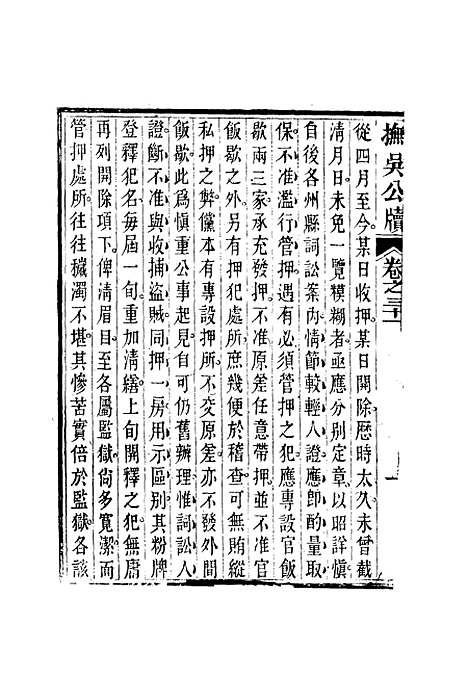 撫吳公牘 卷之三
從四月至今某日收押某日開除歷時太久未曾截
清月日未免一覽糢糊者亟應分別定章以昭詳慎
自後各州縣詞訟案內情節較輕人證應即酌量取
保不准濫行管押遇有必須管押之犯應專設官飯
歇兩三家承充發押不准原差任意帶押並不准官
飯歇之外另有押犯處所庶幾便於稽查可無賄縱
私押之弊儻本有專設押所不交原差亦不發外間
飯歇此為慎重公事起見自可仍舊辦理惟詞訟人
證斷不准與收捕盜賊同押一房用示區別其粉牌
登釋犯名每屆一旬重加清繕上旬開釋之犯無庸
再列開除項下俾清眉目至各屬監獄尙多寬潔而
管押處所往往穢濁不堪其慘苦實倍於監獄各該